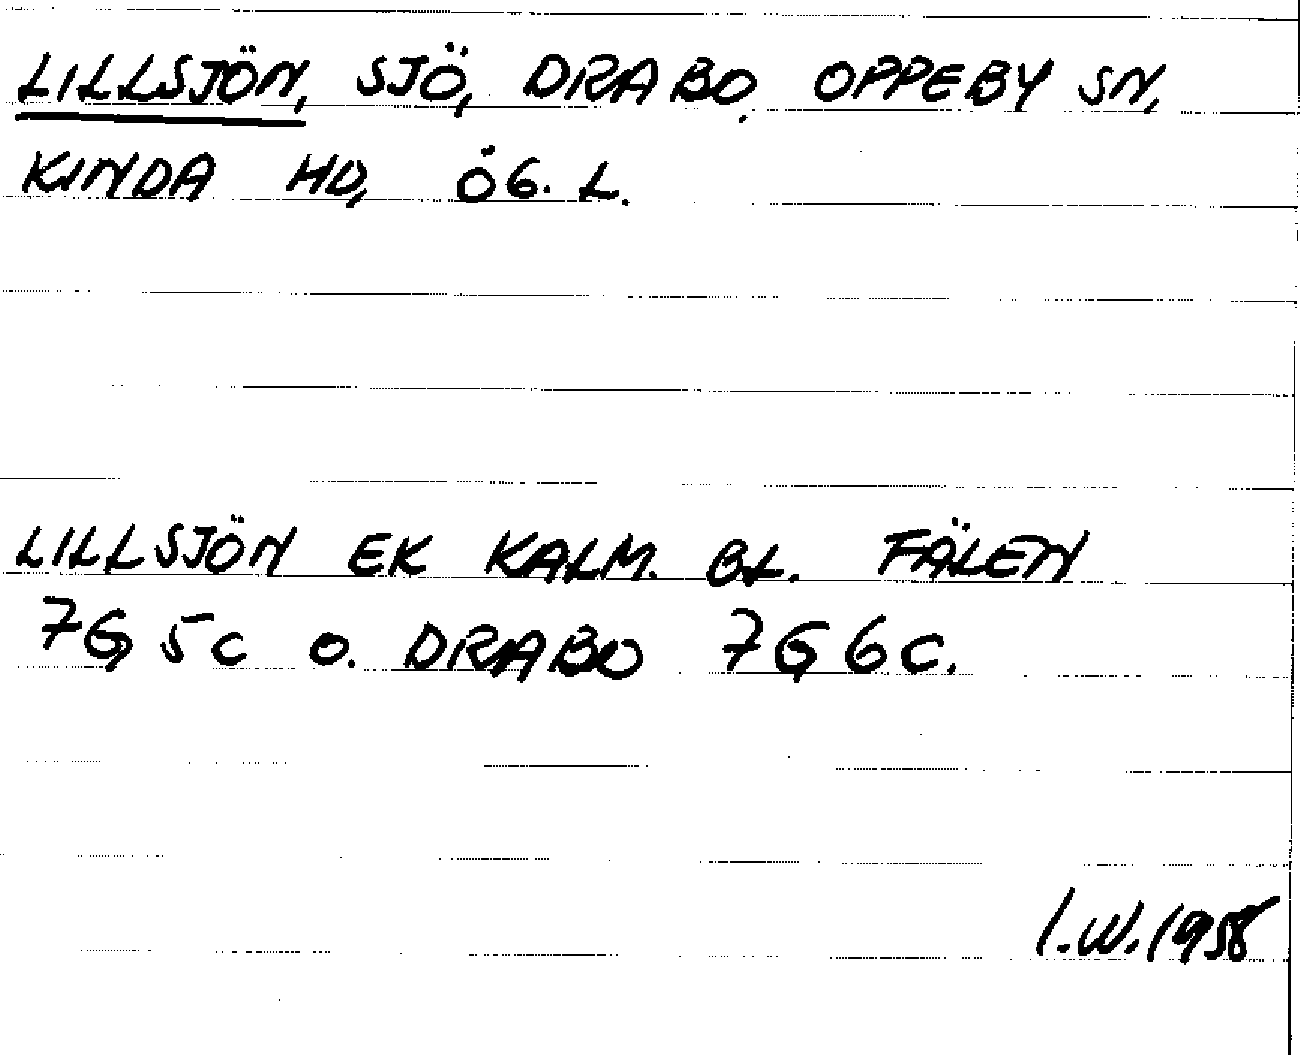 LILLSJÖN, SJÖ, DRABO, OPPEBY SN,
KINDA HD, ÖG. L.
LILLSJÖN EK KALM. BL. FÄLEN
7G 5c o. DRABO 7G 6c.
I.W. 1958